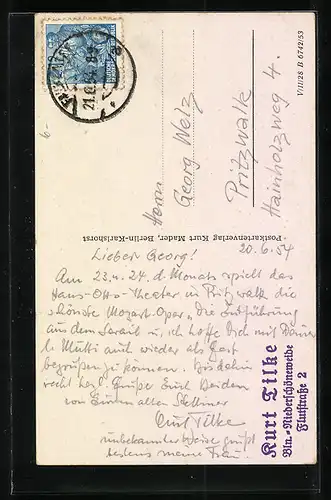 V/11/28 B 6742/53
21.6.54
6-
Herrn
Georg Welz
Pritzwalk
Hainholzweg 4.
Postkartenverlag Kurt Mader, Berlin-Karlshorst
20.6.54
Lieber Georg!
Am 23. u. 24. d. Monats spielt das
Hans-Otto-Theater in Pritzwalk die
schönste Mozart Oper „Die Entführung
aus dem Serail u. ich hoffe Dich mit Deiner
l. Mutti auch wieder als Gast
begrüßen zu können. Bis dahin
recht herzl. Grüße Euch Beiden
von Eurem alten Stettiner
Curt Tilke
unbekannter Weise grüßt
bestens meine Frau.
Kurt Tilke
Bln.-Niederschöneweide
Flutstraße 2